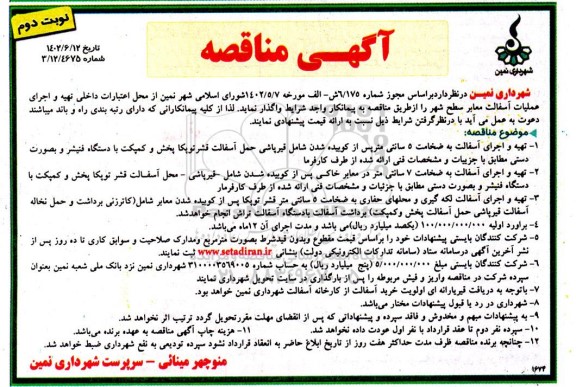 نوبت دوم
آگهـی مناقصه
تاریخ ۱۴۰۲/۶/۱۲
شماره ۳/۱۲/۴۶۷۵
شهرداری نمین
شهرداری نمیـن درنظرداردبراساس مجوز شماره ۶/۱۷۵ش- الف مورخه ۱۴۰۲/۵/۷شورای اسلامی شهر نمین از محل اعتبارات داخلی تهیه و اجرای
عملیات آسفالت معابر سطح شهر را ازطریق مناقصه به پیمانکار واجد شرایط واگذار نماید. لذا از کلیه پیمانکارانی که دارای رتبه بندی راه و باند میباشند
دعوت به عمل می آید با درنظرگرفتن شرایط ذیل نسبت به ارائه قیمت پیشنهادی نمایند.
موضوع مناقصه:
۱- تهیه و اجرای آسفالت به ضخامت ۵ سانتی مترپس از کوبیده شدن شامل قیرپاشی حمل آسفالت قشرتوپکا پخش و کمپکت با دستگاه فنیشر و بصورت
دستی مطابق با جزییات و مشخصات فنی ارائه شده از طرف کارفرما
۲- تهیه و اجرای آسفالت به ضخامت ۷ سانتی متر در معابر خاکسی پس از کوبیده شـدن شامل -قیرپاشی - محل آسفـالت قشر توپکا پخش و کمپکت با
دستگاه فنیشر و بصورت دستی مطابق با جزئیات و مشخصات فنی ارائه شده از طرف کارفرمار
۳- تهیه و اجرای آسفالت لکه گیری و محلهای حفاری به ضخامت ۵ سانتی متر قشر توپکا پس از کوبیده شدن معابر شامل(کاترزنی برداشت و حمل نخاله
آسفالت قیرپاشی حمل آسفالت پخش وکمپکت) برداشت آسفالت بادستگاه آسفالت تراش انجام خواهدشد.
۴- برآورد اولیه ۱۰۰/۰۰۰/۰۰۰/۰۰۰ (یکصد میلیارد ریال)می باشد و مدت اجرای آن ۱۲ماه می‌باشد.
۵- شرکت کنندگان بایستی پیشنهادات خود را براساس قیمت مقطوع وبدون قیدشرط بصورت مترمربع ومدارک صلاحیت و سوابق کاری تا ده روز پس از
نشر آخرین آگهی درسامانه ستاد (سامانه تدارکات الکترونیکی دولت) بنشانی www.setadiran.ir ثبت نمایند.
۶- شرکت کنندگان بایستی مبلغ ۵/۰۰۰/۰۰۰/۰۰۰ (پنج میلیارد ریال) به حساب شماره ۳۱۰۰۰۰۳۵۶۹۰۰۵ شهرداری نمین نزد بانک ملی شعبه نمین بعنوان
سپرده شرکت در مناقصه واریز و فیش مربوطه را پس از بارگذاری در سایت تحویل شهرداری نمایند
۷- باتوجه به دریافت قیریارانه ای اولویت خرید آسفالت از کارخانه آسفالت شهرداری نمین خواهد بود.
۸- شهرداری در رد یا قبول پیشنهادات مختار می‌باشد.
۹- به پیشنهادات مبهم و مخدوش و فاقد سپرده و پیشنهاداتی که پس از انقضای مهلت مقررتحویل گردد ترتیب اثر نخواهد شد.
۱۰- سپرده نفر دوم تا عقد قرارداد با نفر اول عودت داده نخواهد شد. ۱۱- هزینه چاپ آگهی مناقصه به عهده برنده می‌باشد.
۱۲- چنانچه برنده مناقصه ظرف مدت حداکثر هفت روز از تاریخ ابلاغ حاضر به انعقاد قرارداد نشود سپرده تودیعی به نفع شهرداری ضبط خواهد شد.
منوچهر مینائی - سرپرست شهرداری نمین
۱۶۷۴